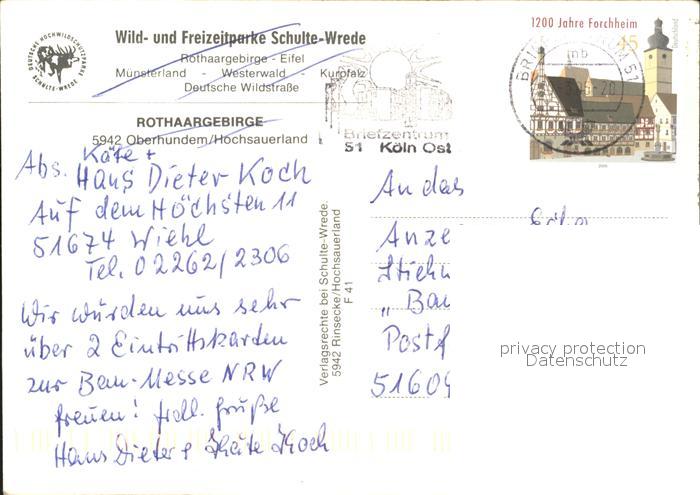 DEUTSCHE HOCHWILDSCHUTZPARKE
SCHULTE-WREDE
Wild- und Freizeitparke Schulte-Wrede
Rothaargebirge - Eifel
Münsterland - Westerwald - Kurpfalz
Deutsche Wildstraße
ROTHAARGEBIRGE
5942 Oberhundem/Hochsauerland
1200 Jahre Forchheim
45
Deutschland
BRIEFZENTRUM 51
mb
Briefzentrum
51 Köln Ost
Käte +
Abs. Hans Dieter Koch
Auf dem Höchsten 11
51674 Wiehl
Tel. 02262/2306
Wir würden uns sehr
über 2 Eintrittskarten
zur Bau-Messe NRW
freuen! frdl. Grüße
Hans Dieter + Käte Koch
Verlagsrechte bei Schulte-Wrede.
5942 Rinsecke/Hochsauerland
F 41
An das
Anze
„Bau
Postf
5160
privacy protection
Datenschutz